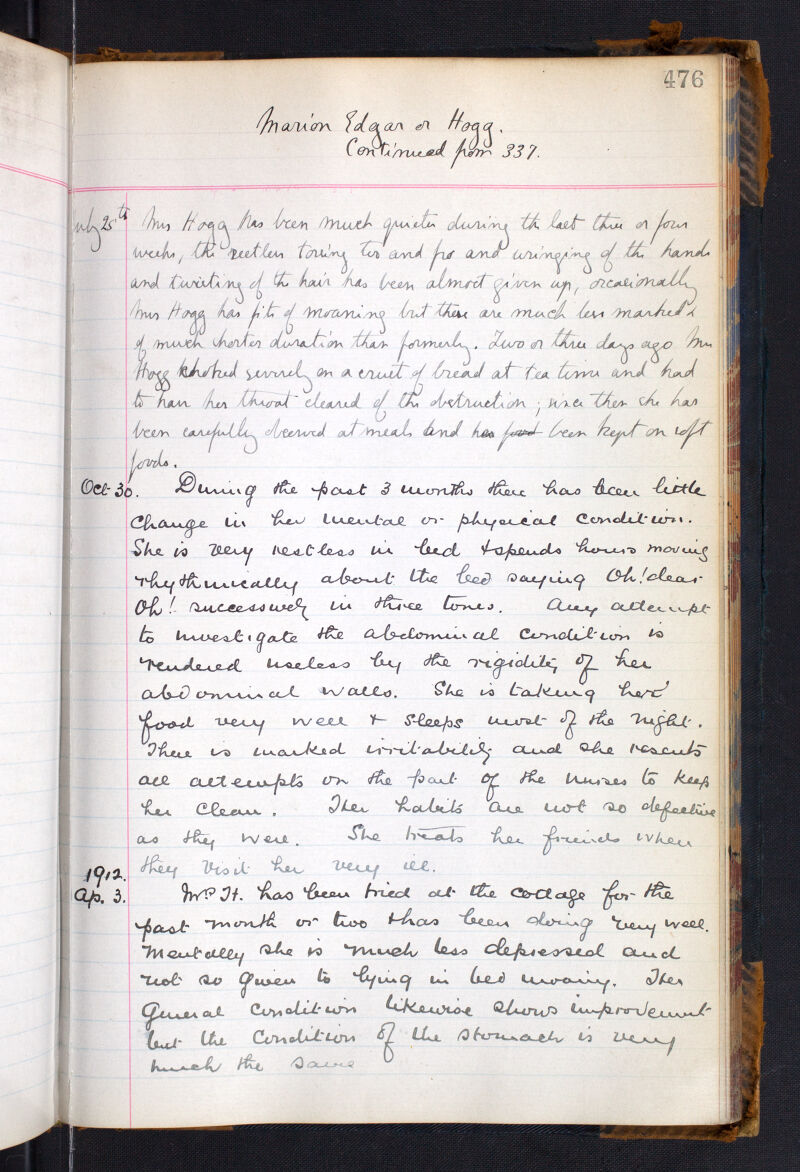 476
Marion Edgar or Hogg.
Continued from 337.
July 25th Mrs Hogg has been much quieter during the last three or four
weeks, the restless tossing too and fro and wringing of the hands
and twisting of the hair has been almost given up, occasionally
Mrs Hogg has fits of moaning but these are much less marked &
of much shorter duration than formerly. Two or three days ago Mrs
Hogg choked severely on a crust of bread at tea time and had
to have her throat cleared of the obstruction; since then she has
been carefully observed at meals and has food been kept on soft
foods.
Oct 30. During the past 3 months there has been little
change in her mental or physical condition.
She is very restless in bed & spends hours moving
rhythmically about the bed saying Oh! dear
Oh! successively in three tones. Any attempt
to investigate the abdominal condition is
rendered useless by the rigidity of her
abdominal walls. She is taking her
food very well & sleeps most of the night.
There is marked irritability and she resents
all attempts on the part of the nurses to keep
her clean. Her habits are not so defective
as they were. She treats her friends when
they visit her very ill.
1912.
Ap. 3. Mrs H. has been tried at the cottage for the
past month or two & has been doing very well.
Mentally she is much less depressed and
not so given to lying in bed moaning. Her
general condition likewise shows improvement
but the condition of the stomach is very
much the same